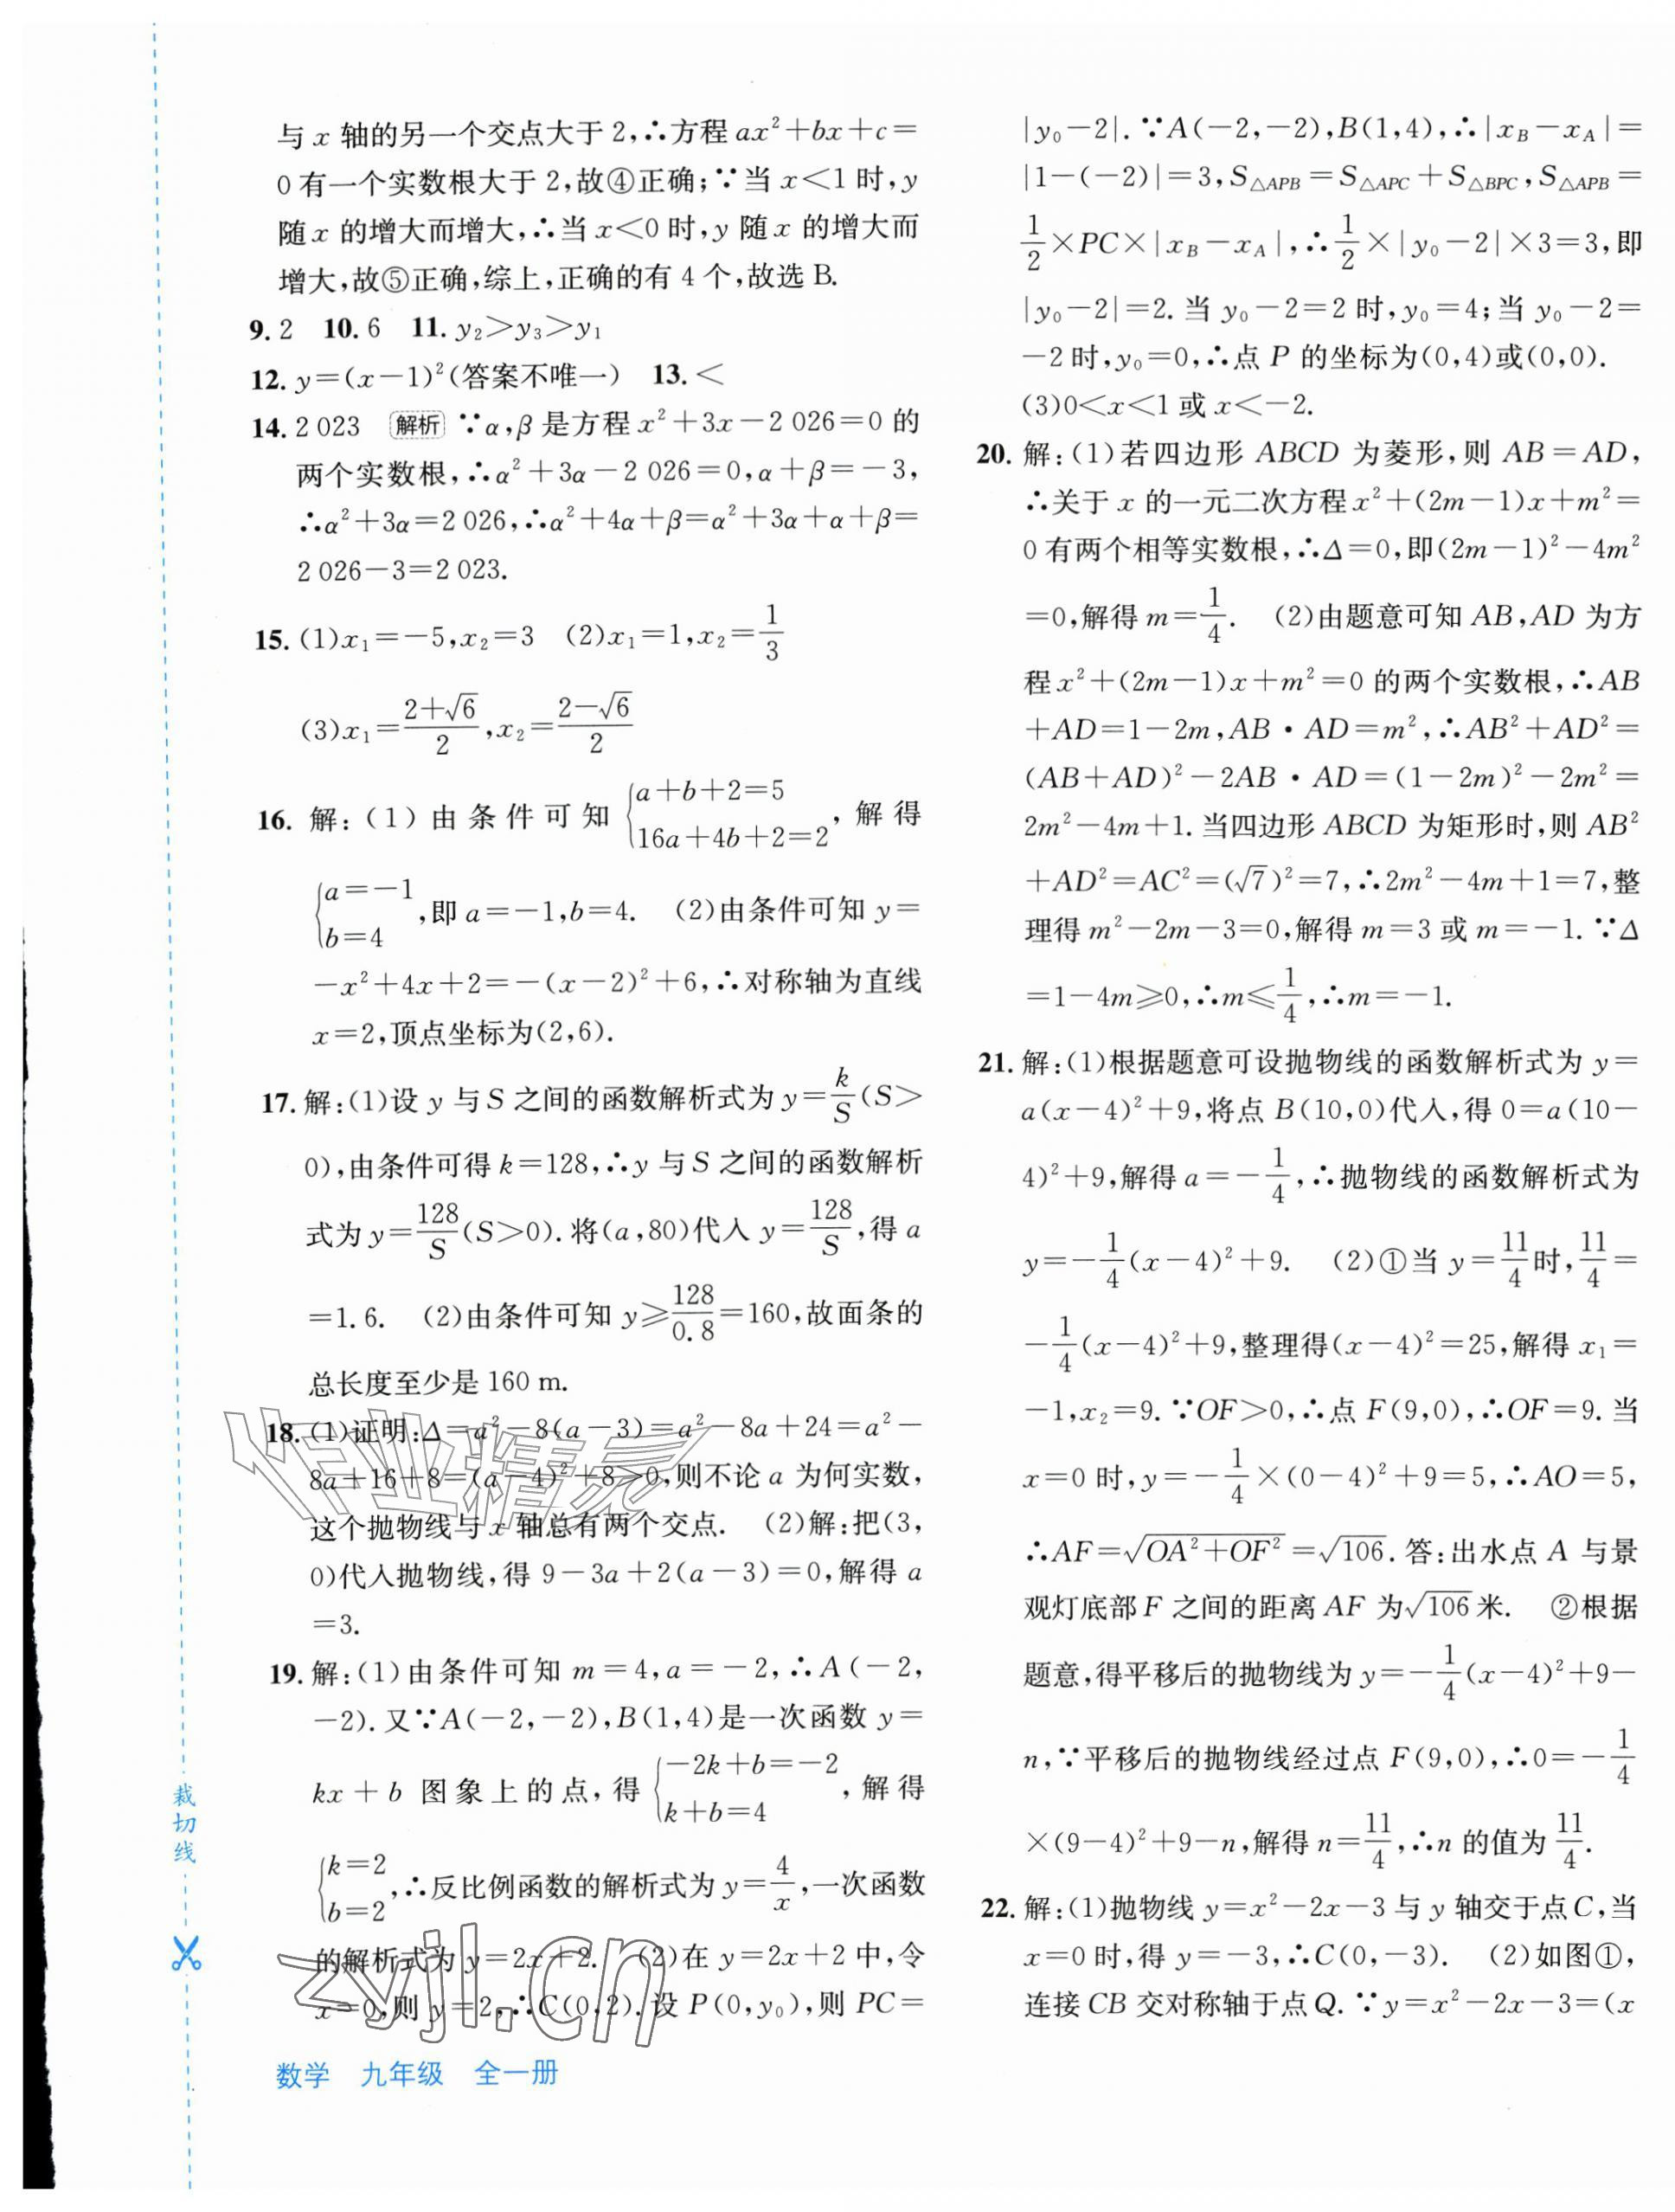 与 x 轴的另一个交点大于 2,∴方程 ax²+bx+c=
0 有一个实数根大于 2,故④正确;∵当 x<1 时,y
随 x 的增大而增大,∴当 x<0 时,y 随 x 的增大而
增大,故⑤正确,综上,正确的有 4 个,故选 B.
9. 2 10. 6 11. y₂>y₃>y₁
12. y=(x-1)²(答案不唯一) 13. <
14. 2 023 解析 ∵α,β 是方程 x²+3x-2 026=0 的
两个实数根,∴α²+3α-2 026=0,α+β=-3,
∴α²+3α=2 026,∴α²+4α+β=α²+3α+α+β=
2 026-3=2 023.
15. (1)x₁=-5,x₂=3 (2)x₁=1,x₂=1/3
(3)x₁=(2+√6)/2,x₂=(2-√6)/2
16. 解:(1)由条件可知 {a+b+2=5 16a+4b+2=2,解得
{a=-1 b=4,即 a=-1,b=4. (2)由条件可知 y=
-x²+4x+2=-(x-2)²+6,∴对称轴为直线
x=2,顶点坐标为(2,6).
17. 解:(1)设 y 与 S 之间的函数解析式为 y=k/S(S>
0),由条件可得 k=128,∴y 与 S 之间的函数解析
式为 y=128/S(S>0). 将(a,80)代入 y=128/S,得 a
=1.6. (2)由条件可知 y≥128/0.8=160,故面条的
总长度至少是 160 m.
18. (1)证明:Δ=a²-8(a-3)=a²-8a+24=a²-
8a+16+8=(a-4)²+8>0,则不论 a 为何实数,
这个抛物线与 x 轴总有两个交点. (2)解:把(3,
0)代入抛物线,得 9-3a+2(a-3)=0,解得 a
=3.
19. 解:(1)由条件可知 m=4,a=-2,∴A(-2,
-2). 又∵A(-2,-2),B(1,4)是一次函数 y=
kx+b 图象上的点,得 {-2k+b=-2 k+b=4,解得
{k=2 b=2,∴反比例函数的解析式为 y=4/x,一次函数
的解析式为 y=2x+2. (2)在 y=2x+2 中,令
x=0,则 y=2,∴C(0,2). 设 P(0,y₀),则 PC=
|y₀-2|. ∵A(-2,-2),B(1,4),∴|x_B-x_A|=
|1-(-2)|=3,S△APB=S△APC+S△BPC,S△APB=
1/2×PC×|x_B-x_A|,∴1/2×|y₀-2|×3=3,即
|y₀-2|=2. 当 y₀-2=2 时,y₀=4;当 y₀-2=
-2 时,y₀=0,∴点 P 的坐标为(0,4)或(0,0).
(3)0<x<1 或 x<-2.
20. 解:(1)若四边形 ABCD 为菱形,则 AB=AD,
∴关于 x 的一元二次方程 x²+(2m-1)x+m²=
0 有两个相等实数根,∴Δ=0,即(2m-1)²-4m²
=0,解得 m=1/4. (2)由题意可知 AB,AD 为方
程 x²+(2m-1)x+m²=0 的两个实数根,∴AB
+AD=1-2m,AB·AD=m²,∴AB²+AD²=
(AB+AD)²-2AB·AD=(1-2m)²-2m²=
2m²-4m+1. 当四边形 ABCD 为矩形时,则 AB²
+AD²=AC²=(√7)²=7,∴2m²-4m+1=7,整
理得 m²-2m-3=0,解得 m=3 或 m=-1. ∵Δ
=1-4m≥0,∴m≤1/4,∴m=-1.
21. 解:(1)根据题意可设抛物线的函数解析式为 y=
a(x-4)²+9,将点 B(10,0)代入,得 0=a(10-
4)²+9,解得 a=-1/4,∴抛物线的函数解析式为
y=-1/4(x-4)²+9. (2)①当 y=11/4 时,11/4=
-1/4(x-4)²+9,整理得(x-4)²=25,解得 x₁=
-1,x₂=9. ∵OF>0,∴点 F(9,0),∴OF=9. 当
x=0 时,y=-1/4×(0-4)²+9=5,∴AO=5,
∴AF=√(OA²+OF²)=√106. 答:出水点 A 与景
观灯底部 F 之间的距离 AF 为√106米. ②根据
题意,得平移后的抛物线为 y=-1/4(x-4)²+9-
n,∵平移后的抛物线经过点 F(9,0),∴0=-1/4
×(9-4)²+9-n,解得 n=11/4,∴n 的值为 11/4.
22. 解:(1)抛物线 y=x²-2x-3 与 y 轴交于点 C,当
x=0 时,得 y=-3,∴C(0,-3). (2)如图①,
连接 CB 交对称轴于点 Q. ∵y=x²-2x-3=(x
裁切线
作业精灵
zyjl.cn
数学 九年级 全一册